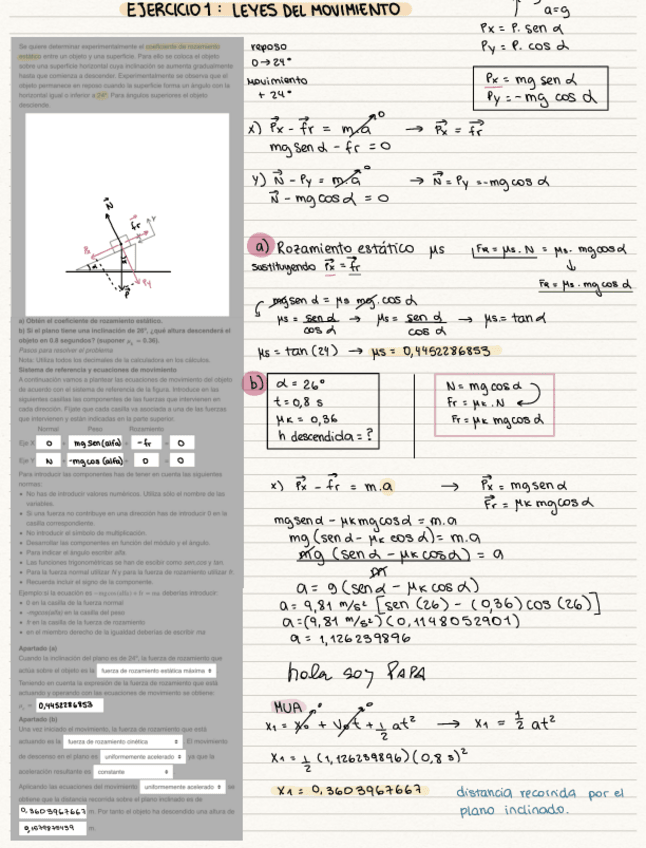 EJERCICIO 1: LEYES DEL MOVIMIENTO
Se quiere determinar experimentalmente el coeficiente de rozamiento
estático entre un objeto y una superficie. Para ello se coloca el objeto
sobre una superficie horizontal cuya inclinación se aumenta gradualmente
hasta que comienza a descender. Experimentalmente se observa que el
objeto permanece en reposo cuando la superficie forma un ángulo con la
horizontal igual o inferior a 24º. Para ángulos superiores el objeto
desciende.
N
fr
Y
Px
α
P
Py
a) Obtén el coeficiente de rozamiento estático.
b) Si el plano tiene una inclinación de 26º, ¿qué altura descenderá el
objeto en 0.8 segundos? (suponer μk = 0.36).
Pasos para resolver el problema
Nota: Utiliza todos los decimales de la calculadora en los cálculos.
Sistema de referencia y ecuaciones de movimiento
A continuación vamos a plantear las ecuaciones de movimiento del objeto
de acuerdo con el sistema de referencia de la figura. Introduce en las
siguientes casillas las componentes de las fuerzas que intervienen en
cada dirección. Fíjate que cada casilla va asociada a una de las fuerzas
que intervienen y están indicadas en la parte superior.
Normal Peso Rozamiento
Eje X 0 + mg sen(alfa) + -fr = 0
Eje Y N + -mgcos (alfa) + 0 = 0
Para introducir las componentes has de tener en cuenta las siguientes
normas:
• No has de introducir valores numéricos. Utiliza sólo el nombre de las
variables.
• Si una fuerza no contribuye en una dirección has de introducir 0 en la
casilla correspondiente.
• No introducir el símbolo de multiplicación.
• Desarrollar las componentes en función del módulo y el ángulo.
• Para indicar el ángulo escribir alfa.
• Las funciones trigonométricas se han de escribir como sen,cos y tan.
• Para la fuerza normal utilizar N y para la fuerza de rozamiento utilizar fr.
• Recuerda incluir el signo de la componente.
Ejemplo si la ecuación es -mgcos(alfa) + fr = ma deberías introducir:
• 0 en la casilla de la fuerza normal
• -mgcos(alfa) en la casilla del peso
• fr en la casilla de la fuerza de rozamiento
• en el miembro derecho de la igualdad deberías de escribir ma
Apartado (a)
Cuando la inclinación del plano es de 24º, la fuerza de rozamiento que
actúa sobre el objeto es la fuerza de rozamiento estática máxima
Teniendo en cuenta la expresión de la fuerza de rozamiento que está
actuando y operando con las ecuaciones de movimiento se obtiene:
μe = 0,4452286853
Apartado (b)
Una vez iniciado el movimiento, la fuerza de rozamiento que está
actuando es la fuerza de rozamiento cinética . El movimiento
de descenso en el plano es uniformemente acelerado ya que la
aceleración resultante es constante
Aplicando las ecuaciones del movimiento uniformemente acelerado se
obtiene que la distancia recorrida sobre el plano inclinado es de
0,3603967667 m. Por tanto el objeto ha descendido una altura de
m.
reposo
0→24°
Movimiento
+ 24°
a=g
Px = P. sen α
Py = P. cos α
Px = mg sen α
Py = -mg cos α
x) Px - fr = m.a 0 → Px = fr
mg sen α - fr = 0
y) N - Py = m.a 0 → N = Py = -mg cos α
N - mg cos α = 0
a) Rozamiento estático μs FR = μs . N = μs . mg cos α
sustituyendo Px = fr ↓
FR = μs . mg cos α
mg sen α = μs mg . cos α
μs = sen α / cos α → μs = sen α / cos α → μs = tan α
μs = tan (24) → μs = 0,4452286853
b) α = 26°
t = 0,8 s
μK = 0,36
h descendida = ?
N = mg cos α
Fr = μK . N
Fr = μK mg cos α
x) Px - fr = m.a → Px = mg sen α
Fr = μK mg cos α
mg sen α - μK mg cos α = m.a
mg (sen α - μK cos α) = m.a
mg (sen α - μK cos α) / m = a
a = g (sen α - μK cos α)
a = 9,81 m/s² [sen (26) - (0,36) cos (26)]
a = (9,81 m/s²) (0,1148052901)
a = 1,126239896
hola soy PAPA
MUA
x1 = x0 0 + V0t 0 + 1/2 at² → x1 = 1/2 at²
x1 = 1/2 (1,126239896) (0,8 s)²
x1 = 0,3603967667 distancia recorrida por el
plano inclinado.